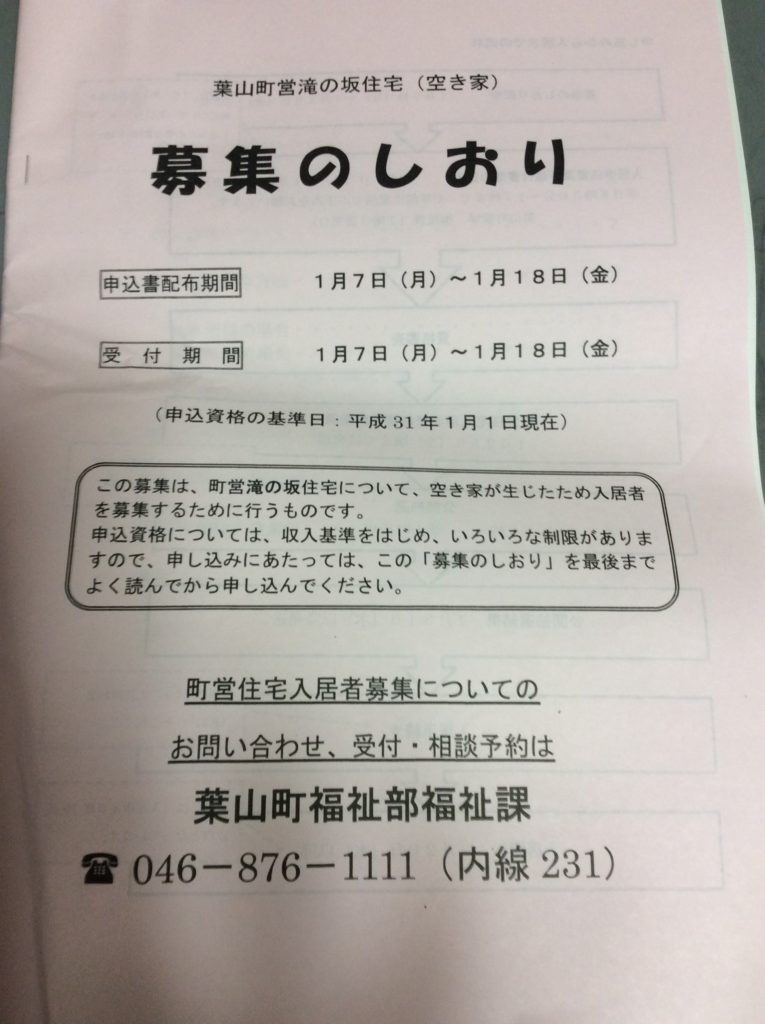 葉山町営滝の坂住宅（空き家）
募集のしおり
申込書配布期間 １月７日（月）～１月１８日（金）
受付期間 １月７日（月）～１月１８日（金）
（申込資格の基準日：平成31年１月１日現在）
この募集は、町営滝の坂住宅について、空き家が生じたため入居者
を募集するために行うものです。
申込資格については、収入基準をはじめ、いろいろな制限がありま
すので、申し込みにあたっては、この「募集のしおり」を最後まで
よく読んでから申し込んでください。
町営住宅入居者募集についての
お問い合わせ、受付・相談予約は
葉山町福祉部福祉課
☎046－876－1111（内線231）